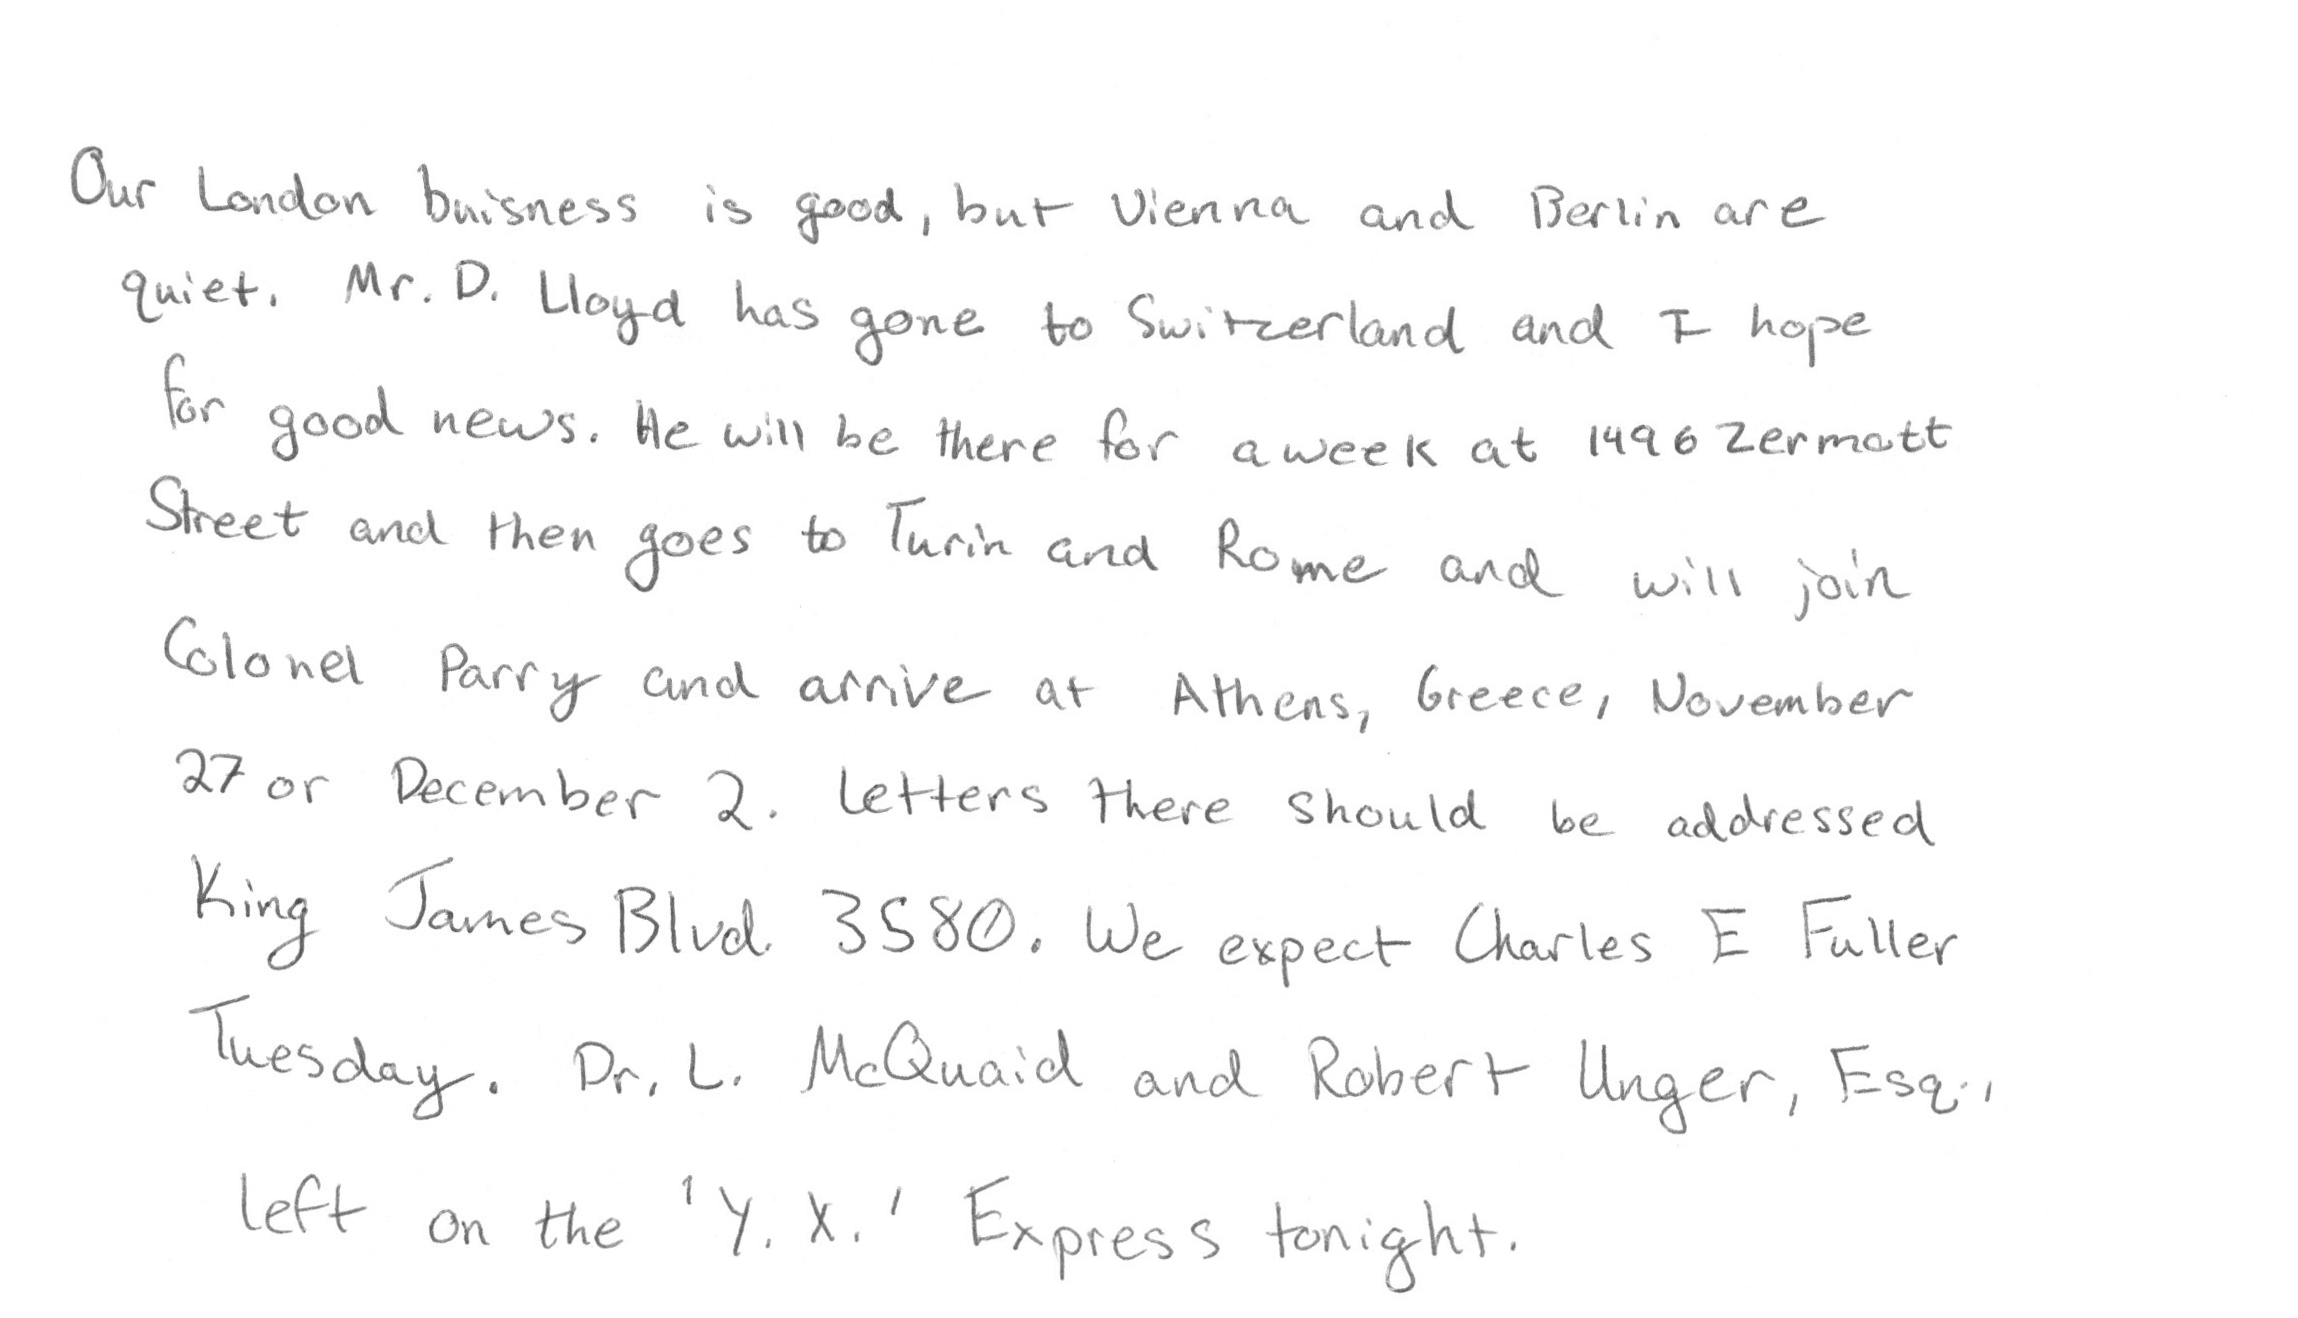 Our London buisness is good, but Vienna and Berlin are
quiet. Mr. D. Lloyd has gone to Switzerland and I hope
for good news. He will be there for a week at 1496 Zermott
Street and then goes to Turin and Rome and will join
Colonel Parry and arrive at Athens, Greece, November
27 or December 2. Letters there should be addressed
King James Blvd. 3580. We expect Charles E Fuller
Tuesday. Dr. L. McQuaid and Robert Unger, Esq.,
left on the 'Y. X.' Express tonight.